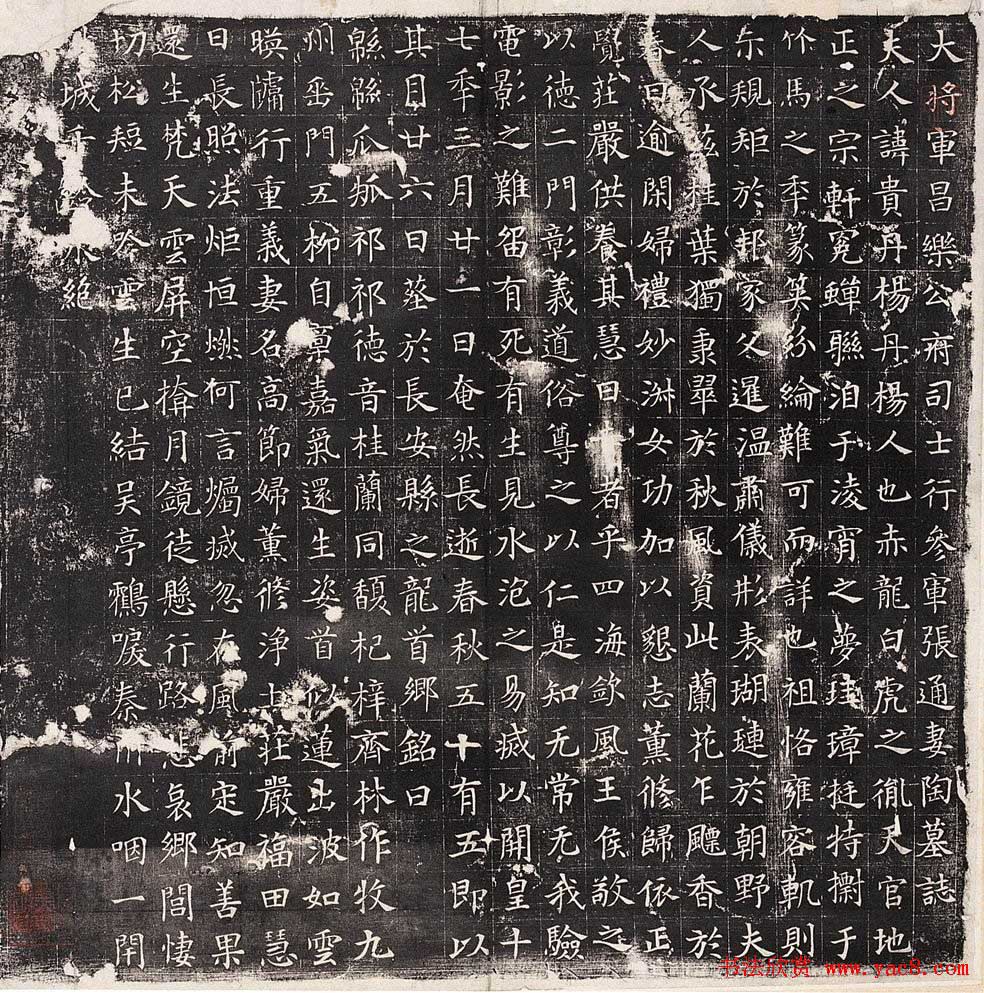 大將軍昌樂公府司士行參軍張通妻陶墓誌
夫人諱貴丹楊丹楊人也赤龍白虎之胤天官地
正之宗軒冕蟬聯洎于淩霄之夢珪璋挺特擱于
竹馬之季篆筭紛綸難可而詳也祖恪雍容軌則
規矩於邦家父暹温肅儀形表瑚璉於朝野夫
人承茲桂葉獨秉翠於秋風資此蘭花乍飃香於
春日逾閑婦禮妙淋女功加以懇志薰修歸依正
覺莊嚴供養其慧日者乎四海欽風王侯敬之
以德二門彰義道俗尊之以仁是知无常无我驗
電影之難留有死有生見水泡之易滅以開皇十
七年三月廿一日奄然長逝春秋五十有五即以
其月廿六日葬於長安縣之龍首鄉銘曰
緜緜瓜瓞祁祁德音桂蘭同馥杞梓齊林作牧九
州垂門五柳自稟嘉氣還生姿首似蓮出波如雲
暎牖行重義妻名高節婦薰修淨土莊嚴福田慧
日長照法炬恒燃何言燭滅忽在風前定知善果
還生梵天雲屏空揜月鏡徒懸行路悲哀鄉閭悽
切松短未吟雲生已結吴亭鶴唳秦川水咽一閇
城千絶
书法欣赏 www.yac8.com